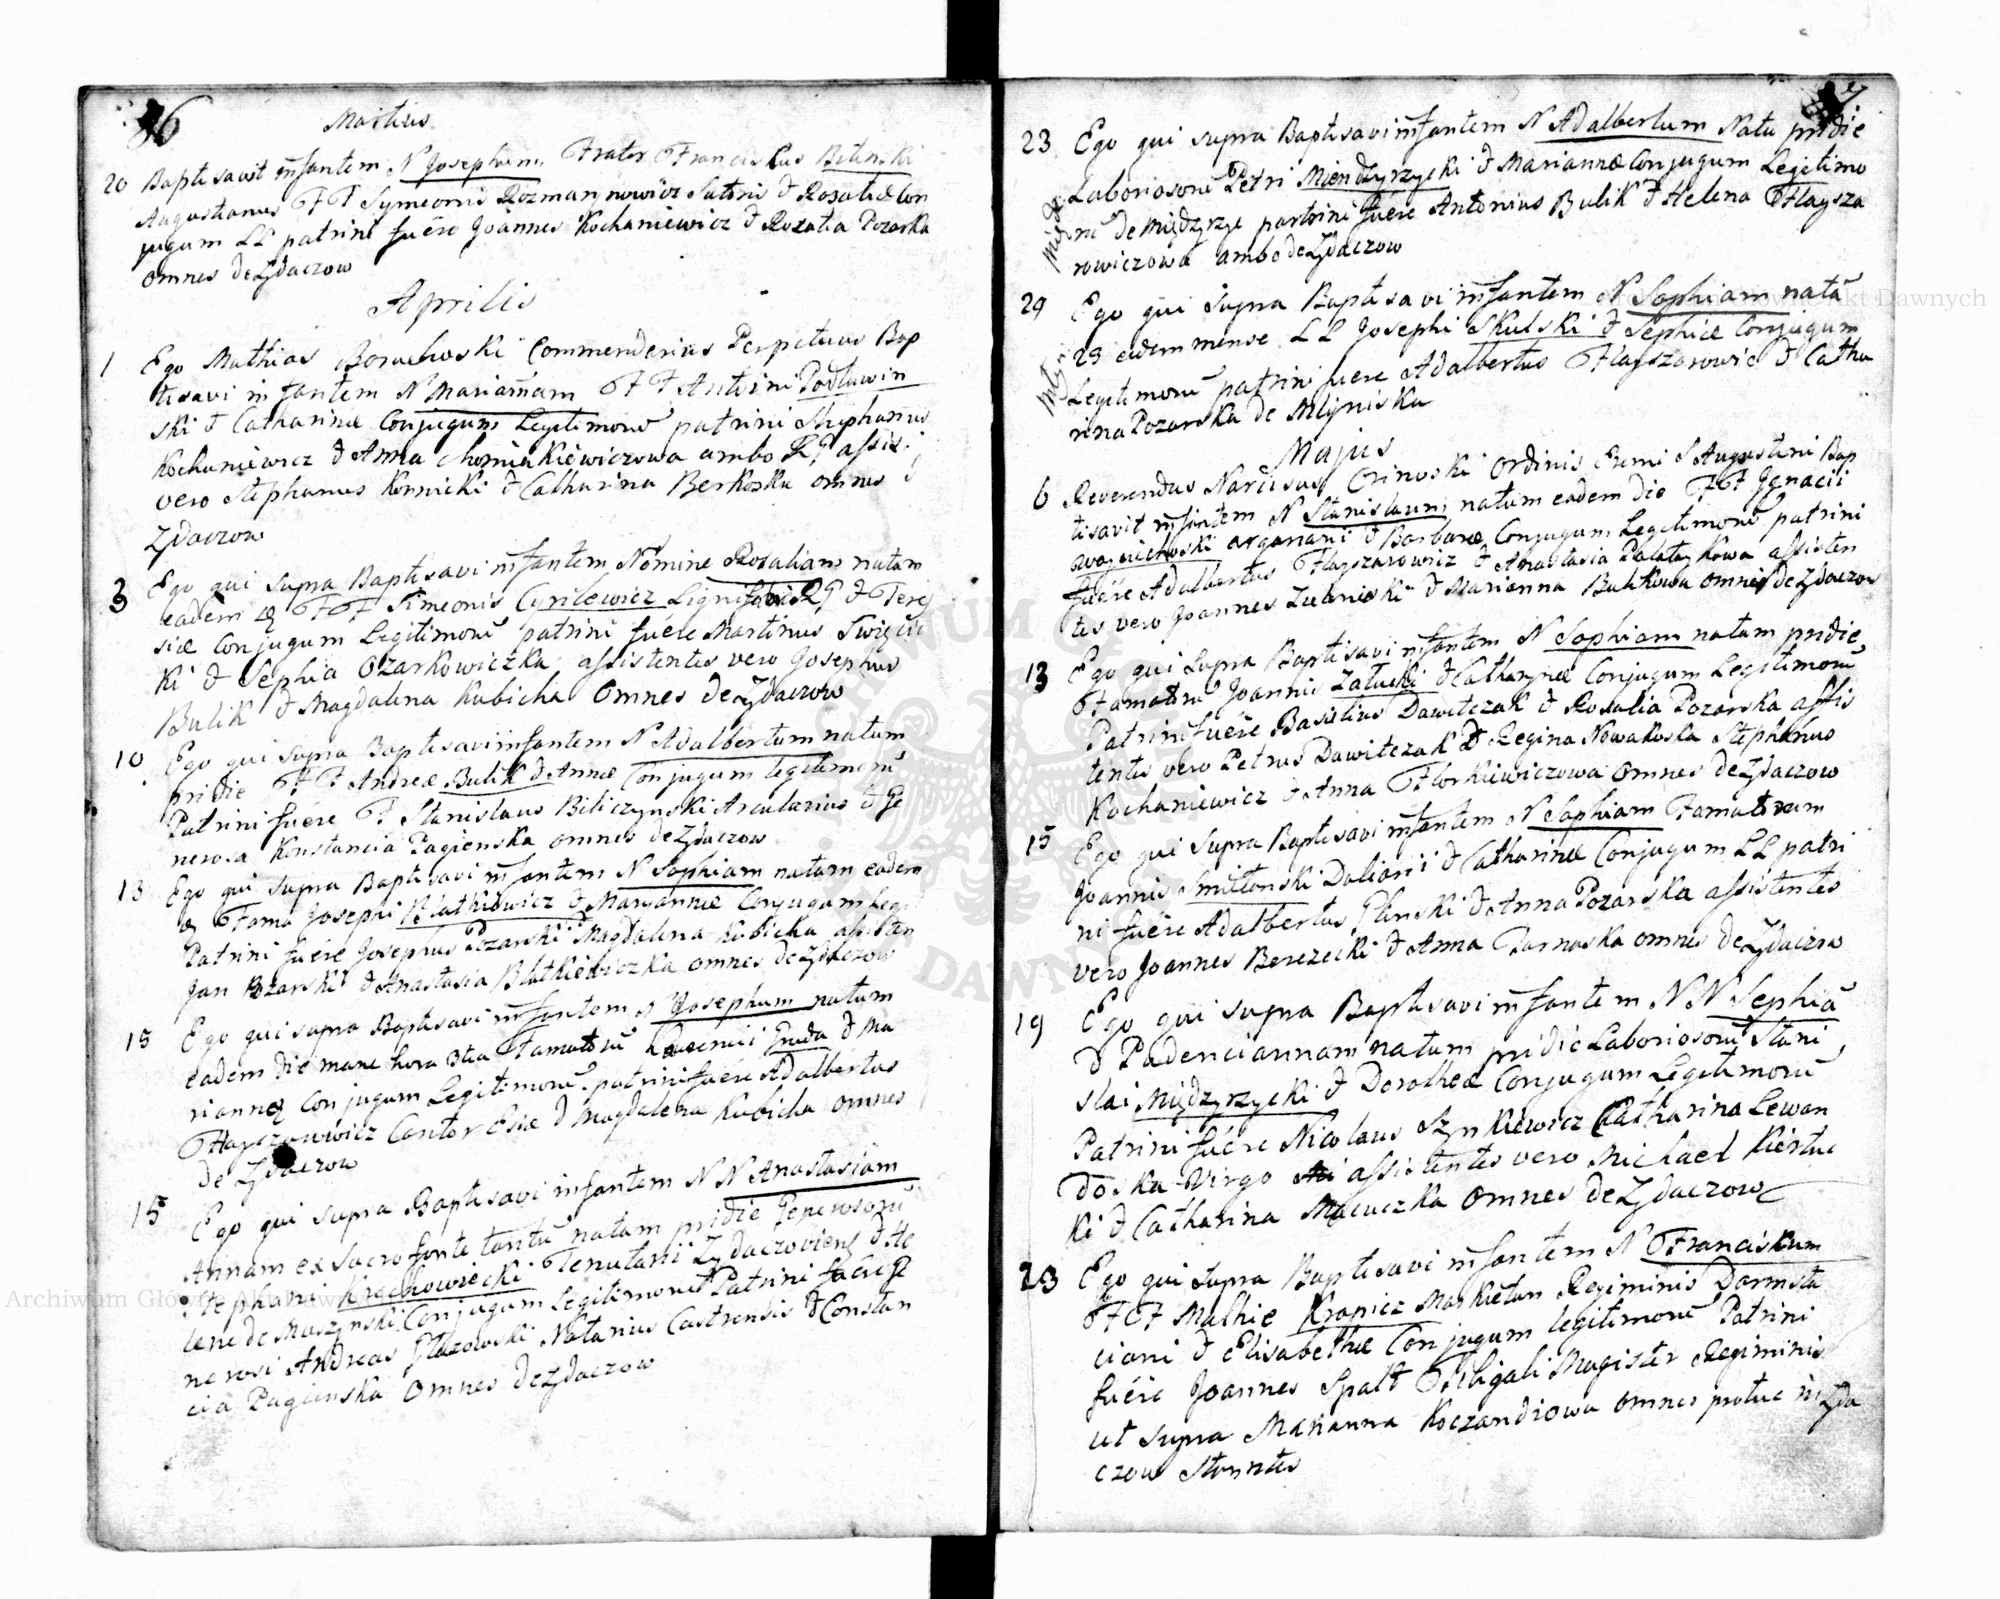 86
Martius
20 Baptisavit infantem N Josephum, Frater Franciskus Bilinski
Augustianus FF Symeonis Rozmarynowicz Sutoris & Rosaliæ Con
jugum LL patrini fuére Joannes Kochaniewicz & Rozalia Pozarska
omnes de Zydaczow
Aprilis
1 Ego Mathias Boruchoski Commenderius Perpetuus Bap
tisavi infantem N Mariannam FF Antoini Podlawin
ski & Catharinæ Conjugum Legitimorũ patrini Stephanus
Kochaniewicz & Anna Chomiakiewiczowa ambo assis:
vero Stephanus Kornicki & Catharina Berkoska omnes d
Zydaczow
3 Ego qui supra Baptisavi infantem Nomine Rosaliam natam
eadem FF Simeonis Cyrilewicz Lignifabri & Tere
siæ Conjugum Legitimorũ patrini fuére Martinus Swięcic
ki & Sophia Ozarkowiczka, assistentes vero Josephus
Bulik & Magdalena Kubicha omnes de Zydaczow
10 Ego qui supra Baptisavi infantem N Adalbertum natum
pridie FF Andreæ Bulik & Annæ Conjugum legitimorũ
Patrini fuére F Stanislaus Biliczynski Arcularius & Ge
nerosa Konstancia Pagienska omnes de Zydaczow
13 Ego qui supra Baptisavi infantem N Sophiam natam eadem
Fama Josephi Blatkiewicz & Mariannæ Conjugum Legit
Patrini fuére Josephus Pozarski Magdalena Kubicha assisten
Jan Pozarski & Anastasia Blatkiewiczka omnes de Zydaczow
15 Ego qui supra Baptisavi infantem N Josephum natum
eadem die mane hora 3tia Famatorũ & Ma
riannę Conjugum Legitimorũ patrini fuére Adalbertus
Flayszarowicz Cantor Eslæ & Magdalena Kubicha omnes
de Zydaczow
15 Ego qui supra Baptisavi infantem NN Anastasiam
Annam ex Sacro fonte tantũ natam pridie Generosorũ
Stephani Krechowiecki Tenutarii Zydaczoviens & He
lenę de Moszynski Conjugum Legitimorũ Patrini fuére Ge
nerosi Andreas Głazowski Notarius Castrensis & Constan
cia Pagienska omnes de Zydaczow
23 Ego qui supra Baptisavi infantem N Adalbertum Natũ pridie
Laboriosorũ Petri Miendzyrzycki & Mariannæ Conjugum Legitimo
rũ de Międzyrze partrini fuére Antonius Bulik & Helena Flaysza
rowiczowa ambo de Zydaczow
Międz
29 Ego qui supra Baptisavi infantem N Sophiam natã
28 eadem mense LL Josephi Skulski & Sophiæ Conjugum
Legitimorũ patrini fuere Adalbertus Flayszarowic & Catha
rina Pozarska de Młyniska
Młyni
Majus
6 Reverendus Narcisus Orinoski Ordinis Eremi S Augustini Bap
tisavit infantem N Stanislaum natum eadem die FF Ignacii
Woyciechoski organarii & Barbaræ Conjugum Legitimorũ patrini
fuére Adalbertus Flayszarowicz & Anastasia Palatykowa assisten
tes vero Joannes Zielinski & Marianna Bulikowa omnes de Zydaczow
13 Ego qui supra Baptisavi infantem N Sophiam natam pridie
Famatorũ Joannis Załucki & Catharynæ Conjugum Legitimorũ
Patrini fuére Basilius Dawitczak & Rosalia Pozarska assis
tentes vero Petrus Dawitczak & Regina Nowakoska Stephanus
Kochaniewicz & Anna Florkiewiczowa omnes de Zydaczow
15 Ego qui supra Baptisavi infantem N Sophiam Famatorum
Joannis Smitonski Doliarii & Catharinæ Conjugum LL patri
ni fuére Adalbertus Glinski & Anna Pozarska assistentes
vero Joannes Berezecki & Anna Tarnoska omnes de Zydaczow
19 Ego qui supra Baptisavi infantem NN Sophiã
& Pudencianam natam pridie Laboriosorũ Stani
slai Międzyrzycki & Dorotheæ Conjugum Legitimorũ
Patrini fuére Nicolaus Szynkiewicz Catharina Lewan
doska Virgo assistentes vero Michael Kiertuc
ki & Catharina Macuczka omnes de Zydaczow
23 Ego qui supra Baptisavi infantem N Franciskum
FF Mathię Kropicz Markietan Regiminis Darmsta
ciani & Elisabethæ Conjugum legitimorũ Patrini
fuére Joannes Spalt Magister Regiminis
ut supra Marianna Koczandiowa omnes protuc in Zyda
czow stantes